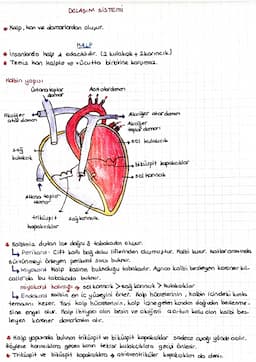 DOLAŞIM SİSTEMİ
Kalp, kan ve damarlardan oluşur.
KALP
İnsanlarda kalp 4 odacıklıdır. (2 kulakçık + 2 karıncık)
Temiz kan kalpte ve vücutta birbirine karışmaz.
Kalbin yapısı
Üstana toplar damar
Aort atardamarı
Akciğer atardamarı
Akciğer atar damarı
Akciğer toplar damarı
Sol kulakçık
Sağ kulakçık
biküspit kapakçıklar
Sol karıncık
Alt ana toplar damar
Triküspit kapakçıklar
Sağ karıncık
Kalbimiz dıştan içe doğru 3 tabakadan oluşur.
Perikard: Çift katlı bağ doku liflerinden oluşmuştur. Kalbi korur. Katlar arasında sürtünmeyi önleyen perikard sıvısı bulunur.
Miyokard: Kalp kasının bulunduğu tabakadır. Ayrıca kalbi besleyen koroner damarlar da bu tabakada bulunur.
Miyokard kalınlığı → Sol karıncık > Sağ karıncık > Kulakçıklar
Endokard: Kalbin en iç yüzeyini örter. Kalp hücrelerinin, kalbin içindeki kanla temasını keser. Yani kalp hücrelerinin, kalp içine gelen kandan doğrudan beslenmesine engel olur. Kalp ihtiyacı olan besin ve oksijeni aorttan kalp olan kalbi besleyen koroner damarlardan alır.
Kalp yapısında bulunan triküspit ve biküspit kapakçıklar sadece aşağı yönde açılır. Böylece karıncıklara geçen kanın tekrar kulakçıklara geçişi önlenir.
Triküspit ve biküspit kapakçıklara atrioventriküler kapakçıklar da denir.